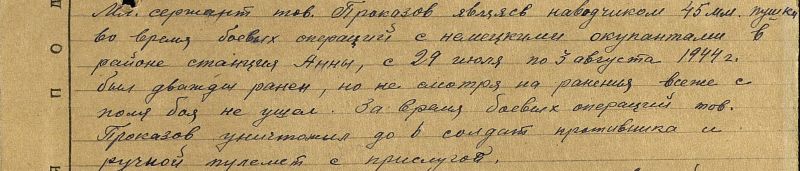 Мл. сержант тов. Проказов являясь наводчиком 45 мм. пушки
во время боевых операций с немецкими окупантами в
районе станция Анны, с 29 июля по 3 августа 1944 г.
был дважды ранен, но не смотря на ранения всеже с
поля боя не ушол. За время боевых операций тов.
Проказов уничтожил до 6 солдат противника и
ручной пулемет с прислугой.